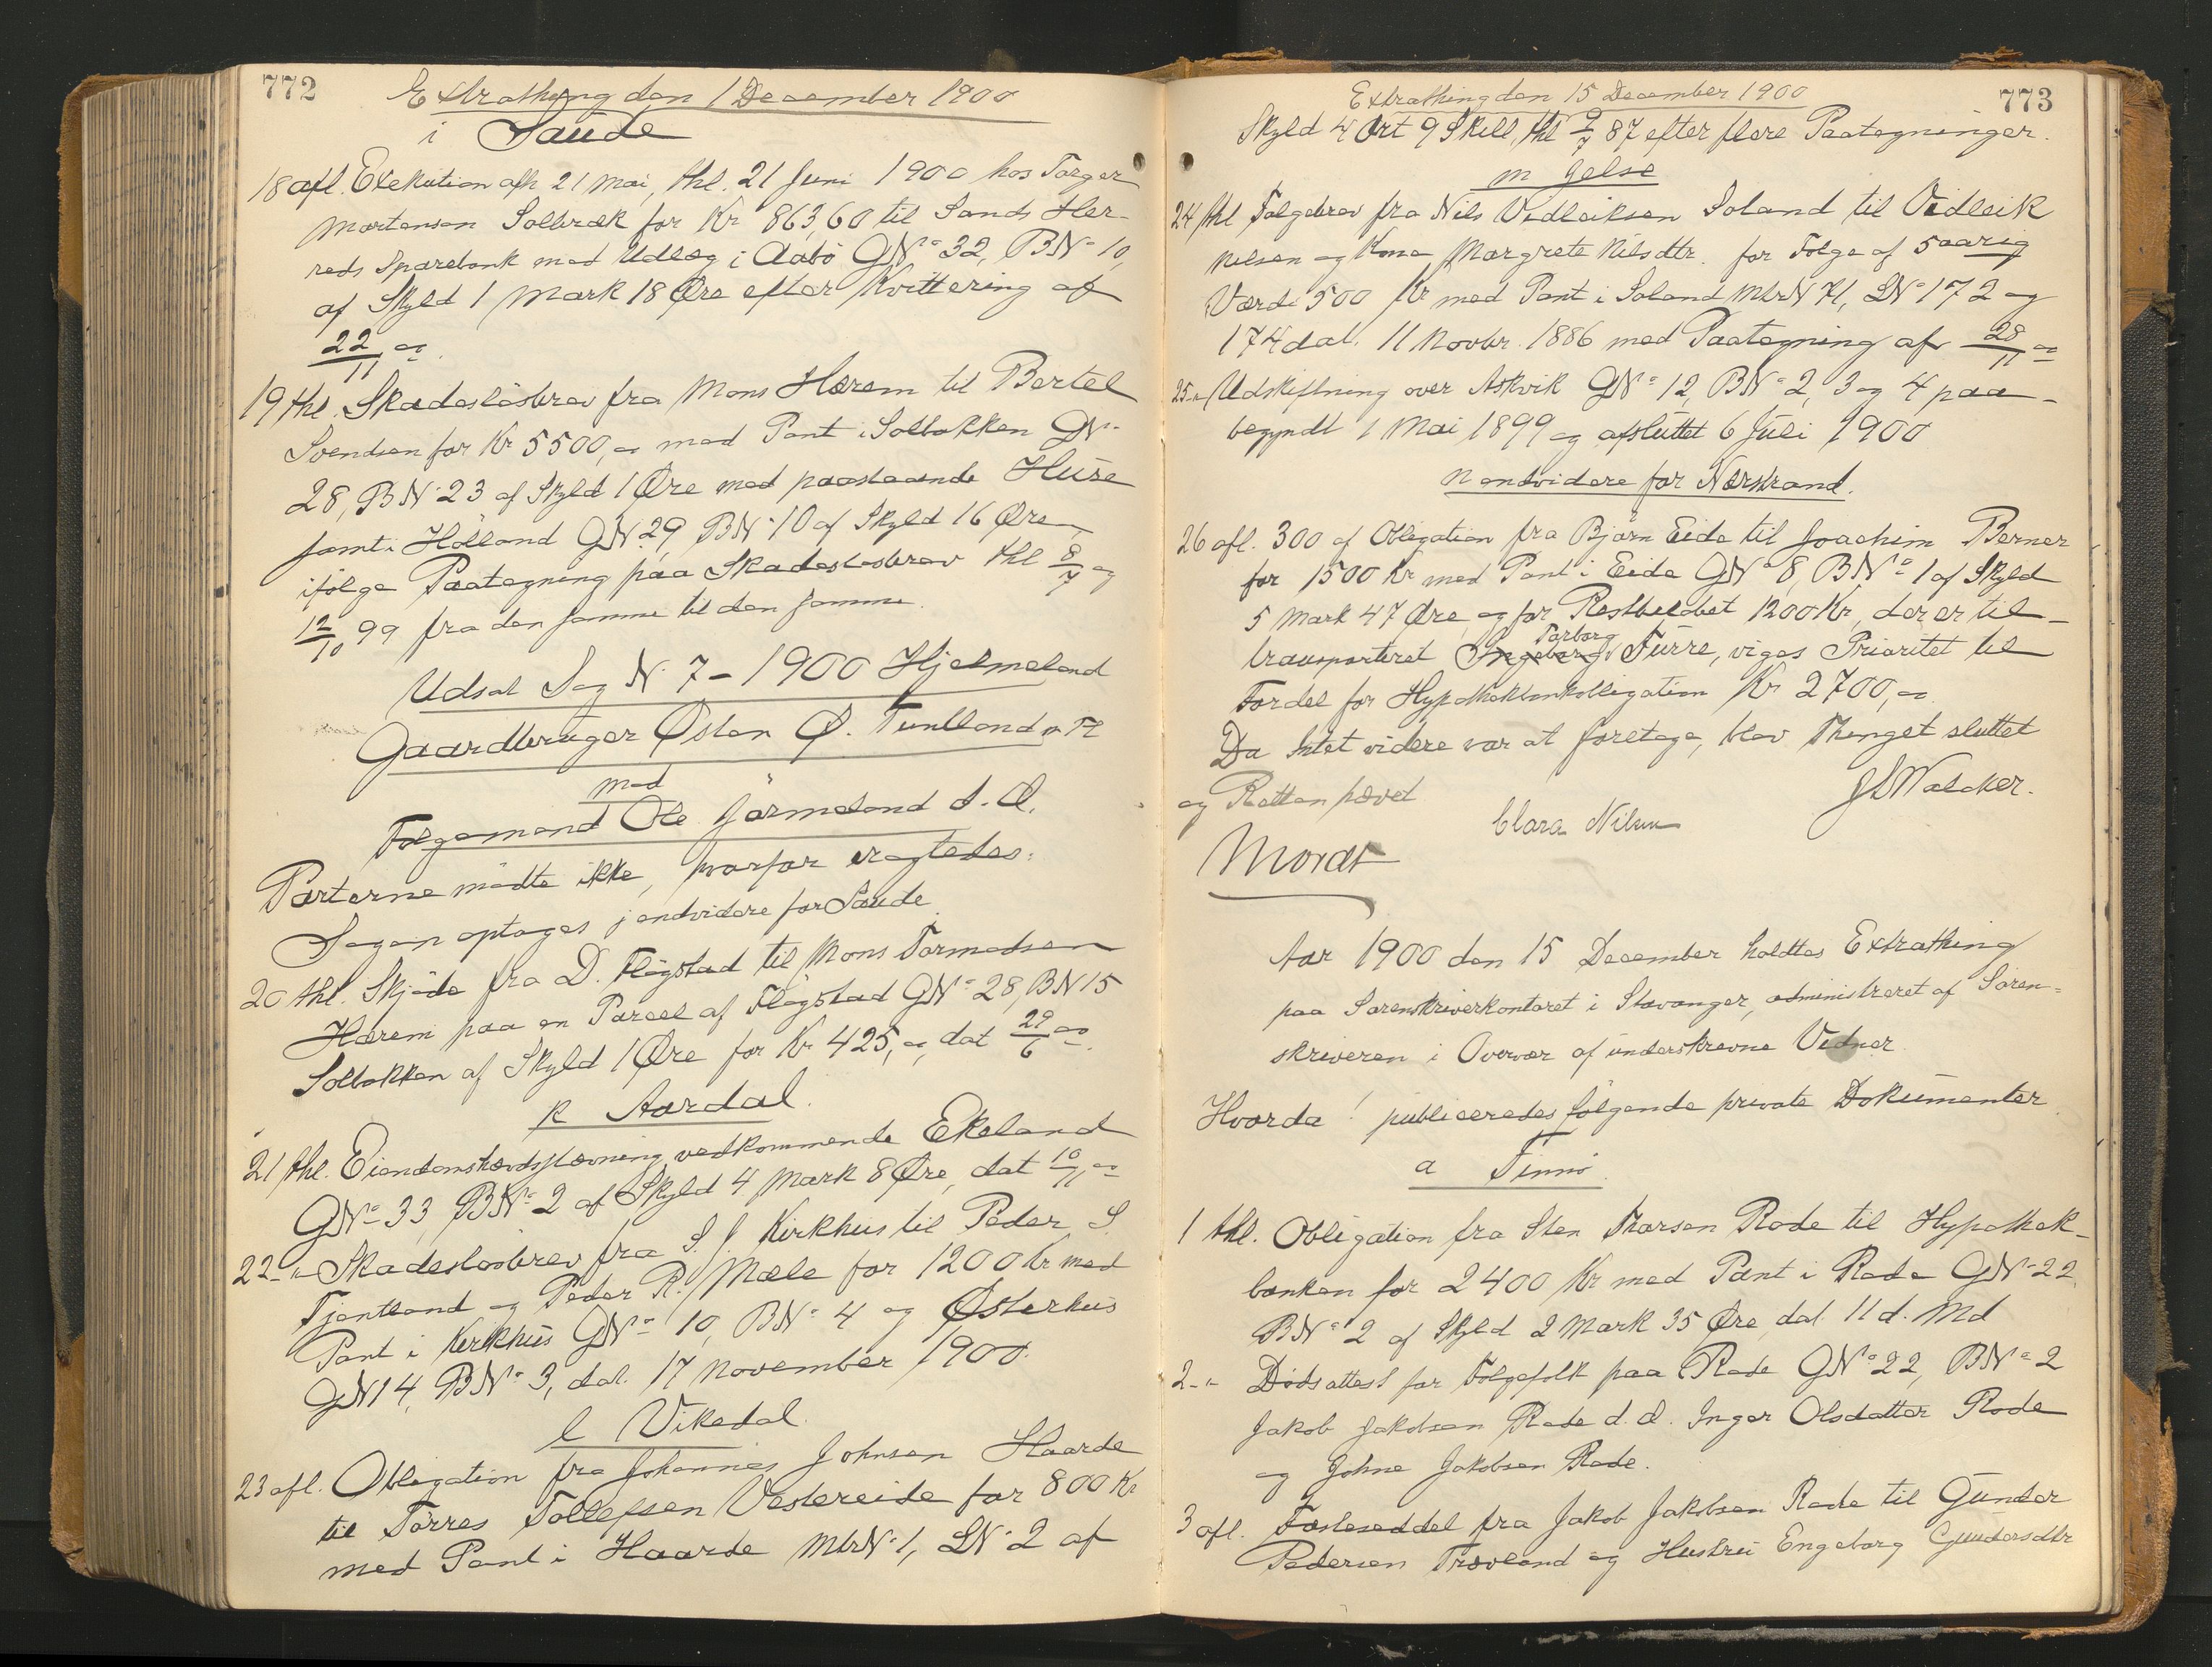 772
Extrathing den 1 December 1900
i Saude
18 afl. Exekution afh 21 Mai, thl. 21 Juni 1900 hos Torger
Mortensen Solbræk for Kr 863,60 til Sands Her-
reds Sparebank med Udlæg i Aabö GNº 32, BNº 10,
af Skyld 1 Mark 18 Øre efter Kvittering af
22/11 00.
19 thl. Skadeslösbrev fra Mons Hærem til Bertel
Svendsen for Kr 5500,00 med Pant i Solbakken GN
28, BN 23 af Skyld 1 Øre med paastaaende Huse
samt i Hölland GN 29, BN 10 af Skyld 16 Øre
ifölge Paategning paa Skadeslösbrev thl 8/7 og
12/10 99 fra den samme til den samme.
Udsat Sag N. 7 - 1900 Hjelmeland
Gaardbruger Østen Ø. Tuntland
mod
Folgemand Ole Jörmeland d. Æ.
Parterne mödte ikke, hvorfor eragtedes:
Sagen optages j endvidere for Saude
20 thl. Skjöde fra D. Flögstad til Mons Tormodsen
Hærem paa en Parcel af Flögstad GNº 28, BN 15
Solbakken af Skyld 1 Øre for Kr 425,00, dat 29/6 00.
k Aardal
21 thl. Eiendomshævdslævning vedkommende Ekeland
GNº 33, BNº 2 af Skyld 4 Mark 8 Øre, dat 10/11 00
22 -"- Skadeslösbrev fra S. J. Kirkhus til Peder S.
Tjentland og Peder R. Mæle for 1200 Kr med
Pant i Kirkhus GNº 10, BNº 4 og Østerhus
GN 14, BNº 3, dat. 17 November 1900.
l Vikedal
23 afl. Obligation fra Johannes Johnsen Haarde
til Törres Tollefsen Vestereide for 800 Kr
med Pant i Haarde MtrN 1, LN 2 af
773
Extrathing den 15 December 1900
Skyld 4 Ort 9 Skill, thl 9/7 87 efter flere Paategninger.
m Jelse
24 thl Folgebrev fra Nils Vedleiksen Soland til Vedleik
Nilsen og Kone Margrete Nilsdtr. for Folge af 5aarig
Værdi 500 Kr med Pant i Soland MtrN 71, LNº 172 og
174 dat. 11 Novbr. 1886 med Paategning af 28/11 00
25 -"- Udskiftning over Askvik GNº 12, BNº 2, 3 og 4 paa-
begyndt 1 Mai 1899 og afsluttet 6 Juli 1900
n endvidere for Nærstrand.
26 afl. 300 af Obligation fra Björn Eide til Joachim Berner
for 1500 Kr med Pant i Eide GNº 8, BNº 1 af Skyld
5 Mark 47 Øre, og for Restbelöbet 1200 Kr, der er til-
transporteret Ingeborg Torborg Furre, viges Prioritet til
Fordel for Hypothekbankobligation Kr 2700,00
Da Intet videre var at foretage, blev Thinget sluttet
og Retten hævet
Clara Nilsen
Mordt
Aar 1900 den 15 December holdtes Extrathing
paa Sorenskriverkontoret i Stavanger, administreret af Soren-
skriveren i Overvær af underskrevne Vidner.
Hvorda! publiceredes fölgende private Dokumenter
a Finnö
1 thl. Obligation fra Sten Thorsen Rode til Hypothek-
banken for 2400 Kr med Pant i Rode GNº 22
BNº 2 af Skyld 2 Mark 35 Øre, dat 11 d. Md
2 -"- Dödsattest for Folgefolk paa Rode GNº 22, BNº 2
Jakob Jakobsen Rode d. Æ. Inger Olsdatter Rode
og Johne Jakobsen Rode.
3 afl. Fæsteseddel fra Jakob Jakobsen Rode til Gunder
Pedersen Trovland og Hustru Engeborg Gundersdtr